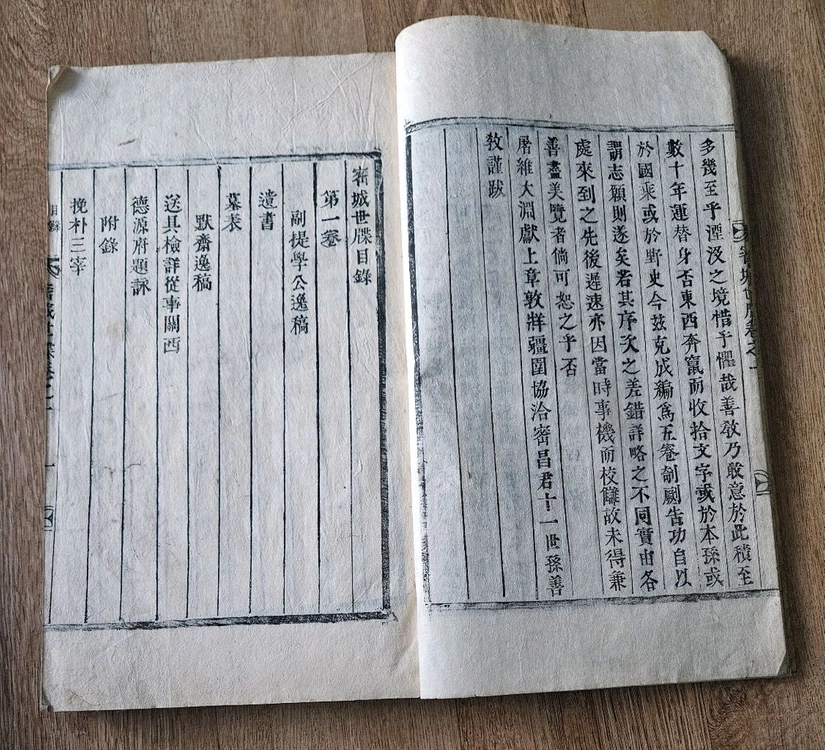 密城世牒卷之一
多幾至乎湮沒之境惜乎懼哉善敎乃敢意於此積至
數十年運替身否東西奔竄而收拾文字或於本孫或
於國乘或於野史今玆克成編爲五卷剞劂告功自以
謂志願則遂矣若其序次之差錯詳略之不同實由各
處來到之先後遲速亦因當時事機而校讎故未得兼
善盡美覽者倘可恕之乎否
屠維大淵獻上章敦牂疆圉協洽密昌君十一世孫善
敎謹跋
密城世牒目錄
第一卷
副提學公逸稿
遺書
墓表
默齋逸稿
送具檢詳從事關西
德源府題詠
附錄
挽朴三宰
目錄
密城世牒卷之一
一